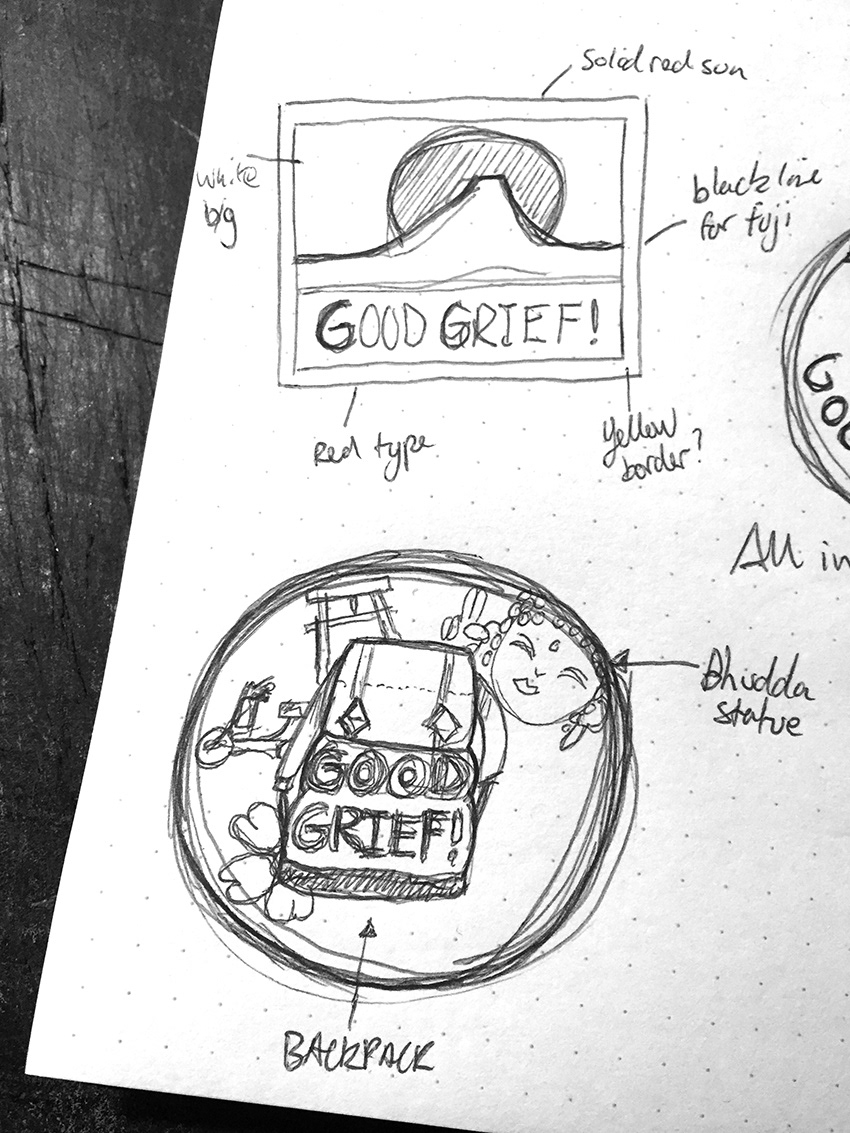 Solid red sun
white
b/g
black line
for fuji
GOOD GRIEF!
Red type
Yellow
border?
GOO
All in
Bhudda
statue
GOOD
GRIEF!
BACKPACK